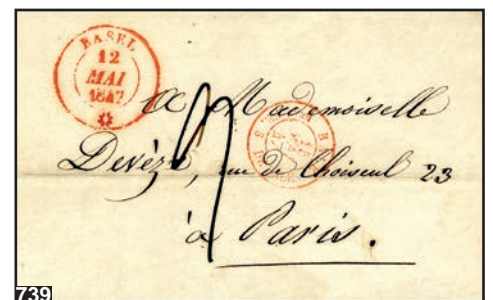 BASEL
12
MAI
1847
A Mademoiselle
Devèze, rue de Choiseul 23
à Paris.
739